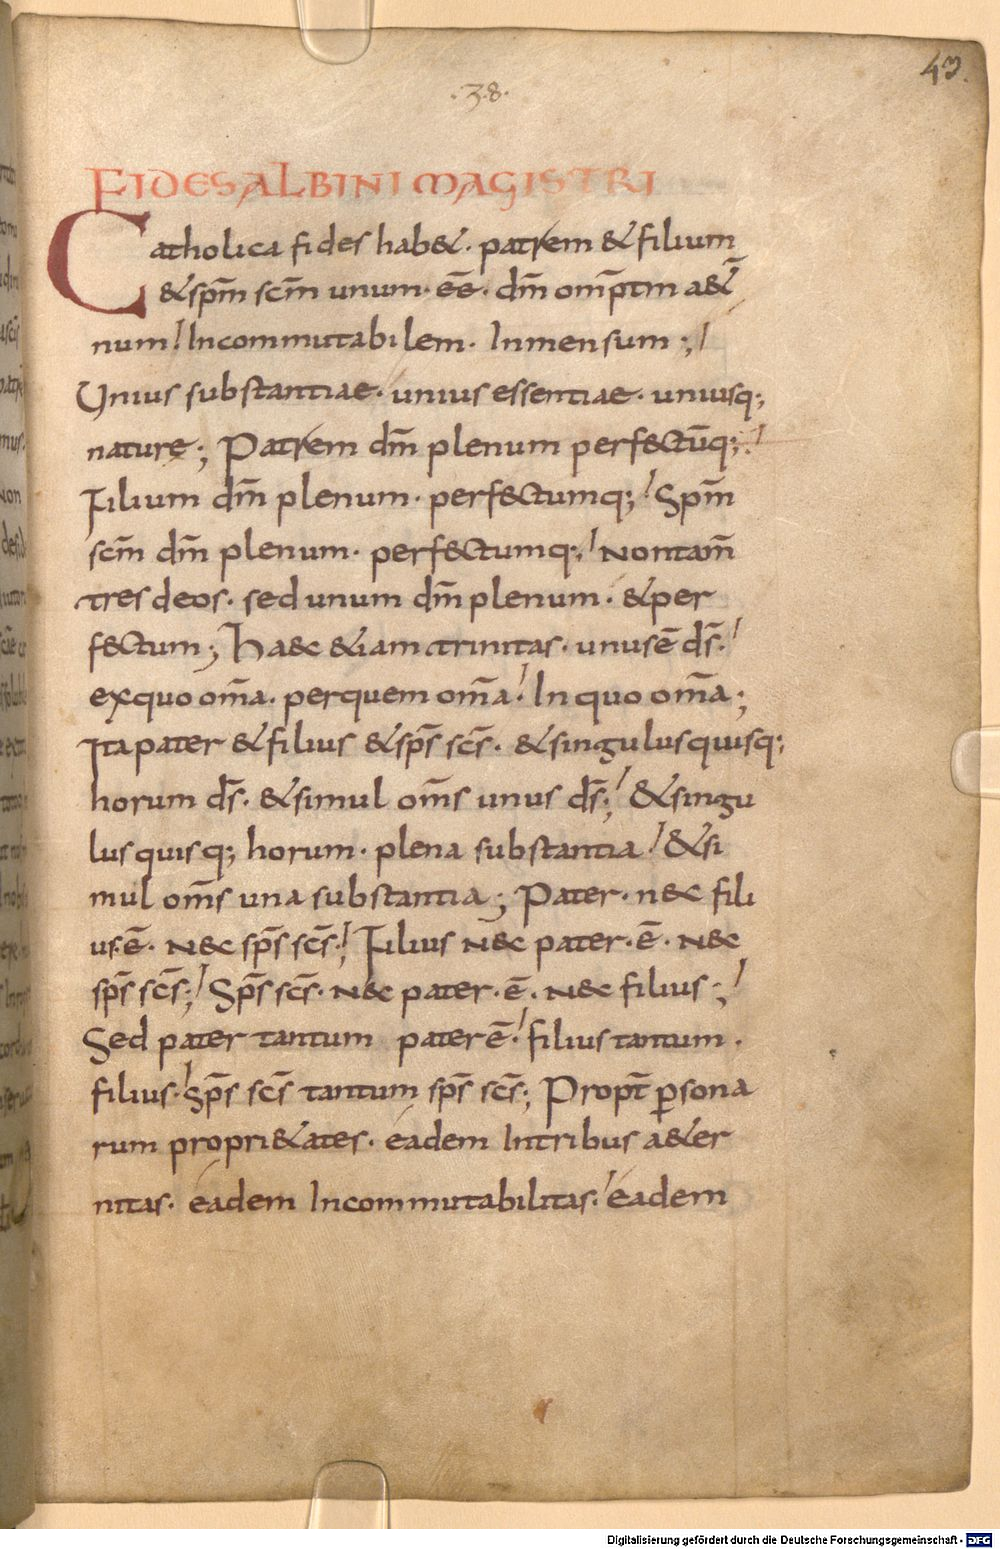 43.
·38·
FIDES ALBINI MAGISTRI
Catholica fides hab&. patrem & filium
& sp̄m sc̄m unum. ēē. dm̄ omīptm̄ a&er̄
num! Incommutabilem. Inmensum;
Unius substantiae. unius essentiae. uniusq;
nature; Patrem dm̄ plenum perf&ctūq;
Filium dm̄ plenum. perf&ctumq; Sp̄m
sc̄m dm̄ plenum. perf&ctumq; Nontam̄
tres deos. sed unum dm̄ plenum. & per
f&ctum; Haec &iam trinitas. unus ē ds̄.
ex quo om̄a. per quem om̄a! In quo om̄a;
Ita pater & filius & sp̄s sc̄s. & singulus quisq;
horum ds̄. & simul om̄s unus ds̄; & singu
lus quisq; horum. plena substantia! & si
mul om̄s una substantia; Pater. nec fili
us. ē. nec sp̄s sc̄s; Filius nec pater. ē. nec
sp̄s sc̄s; Sp̄s sc̄s. nec pater. ē. nec filius;
Sed pater tantum pater ē. filius tantum.
filius. sp̄s sc̄s tantum sp̄s sc̄s; Propt̄ p̱sona
rum propri&ates. eadem In tribus a&er
nitas. eadem Incommutabilitas. eadem
Digitalisierung gefördert durch die Deutsche Forschungsgemeinschaft - DFG